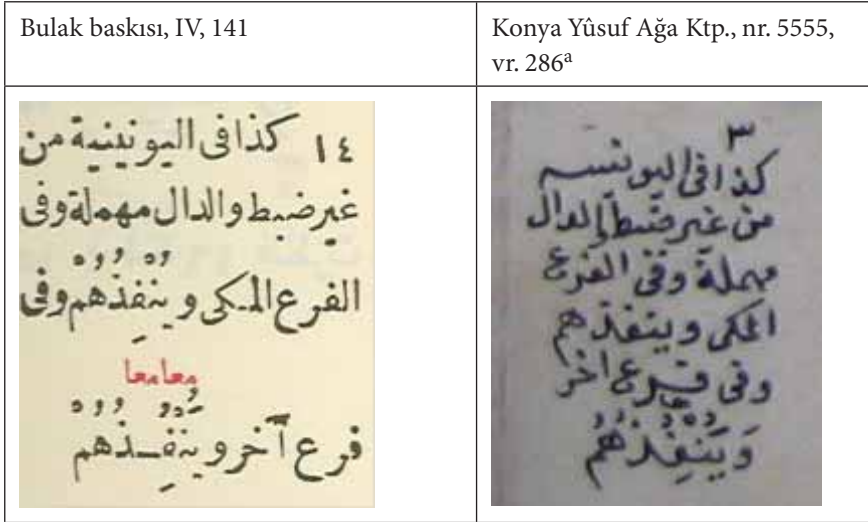 Bulak baskısı, IV, 141
Konya Yûsuf Ağa Ktp., nr. 5555,
vr. 286ª
١٤ كذا فى اليونينية من
غير ضبط والدال مهملة وفى
الفرع المكى ويُنْفِذُهُمْ وفى
معا معا
فرع آخر ويَُنْفُِذُهُمْ
٣
كذا فى اليونينيه
من غير ضبط الدال
مهملة وفى الفرع
المكى وينفذهم
وفى فرع اخر
وَيَُنْفُِذُهُمْ